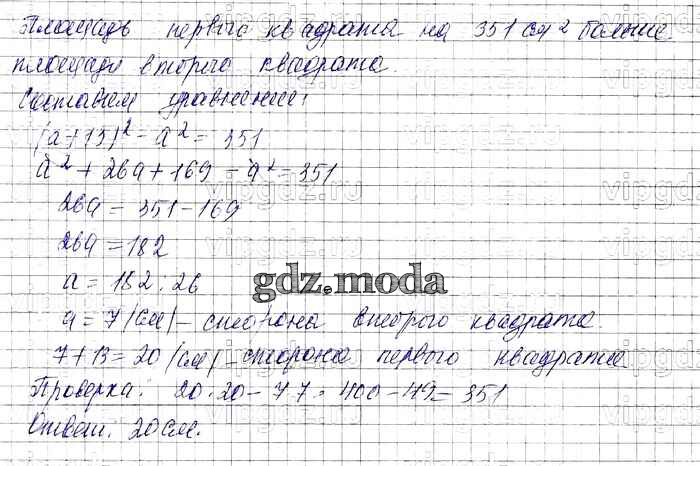 Площадь первого квадрата на 351 см² больше
площади второго квадрата.
Составим уравнение:
(a+13)² - a² = 351
a² + 26a + 169 - a² = 351
26a = 351 - 169
26a = 182
a = 182 : 26
gdz.moda
a = 7 (см) - сторона второго квадрата.
7 + 13 = 20 (см) - сторона первого квадрата
Проверка: 20 · 20 - 7 7 = 400 - 49 = 351
Ответ: 20 см.